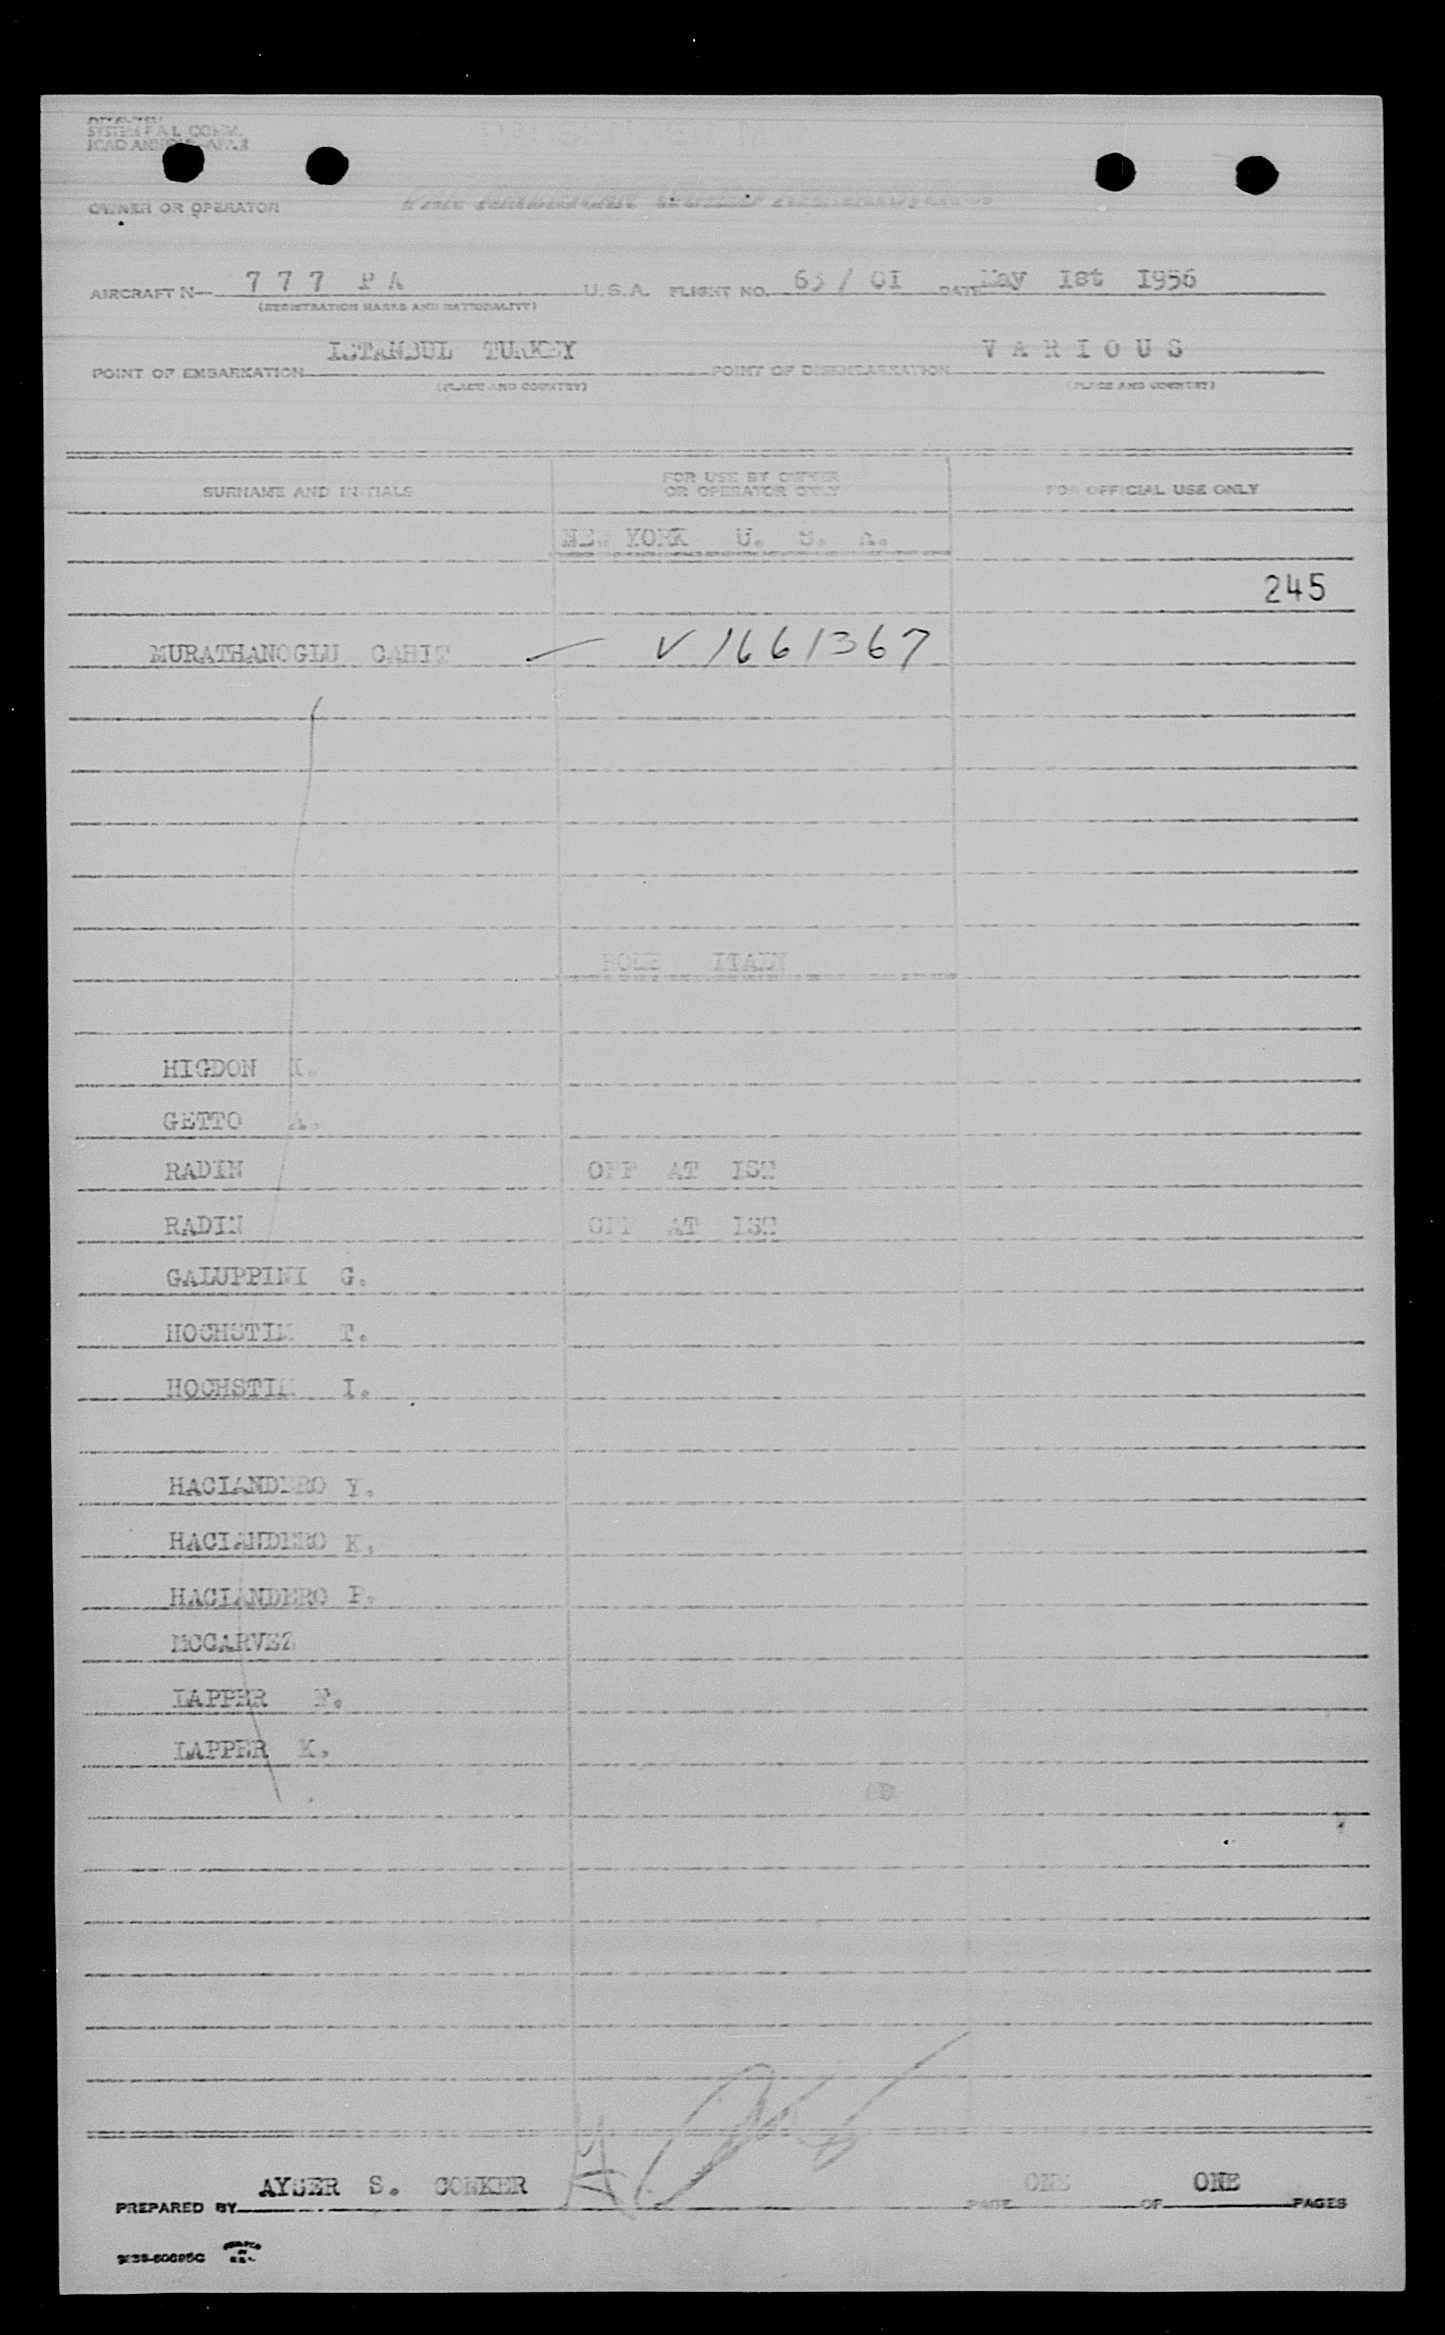 SYSTEM F.A.L. COMM.
OWNER OR OPERATOR
AIRCRAFT N— 777 PA U.S.A. FLIGHT NO. 63 / 01 DATE May 1st 1956
(REGISTRATION MARKS AND NATIONALITY)
ISTANBUL TURKEY VARIOUS
POINT OF EMBARKATION POINT OF DISEMBARKATION
(PLACE AND COUNTRY) (PLACE AND COUNTRY)
FOR USE BY OWNER
SURNAME AND INITIALS OR OPERATOR ONLY FOR OFFICIAL USE ONLY
NEW YORK U. S. A.
245
MURATHANOGLU CAHIT — V 1661367
ROME ITALY
HIGDON I.
GETTO A.
RADIN OFF AT IST
RADIN OFF AT IST
GALUPPINI G.
HOCHSTIM T.
HOCHSTIM I.
HACIANDERO Y.
HACIANDERO K.
HACIANDERO P.
MCGARVEZ
LAPPER F.
LAPPER K.
AYSER S. CONKER ONE ONE
PREPARED BY PAGE OF PAGES